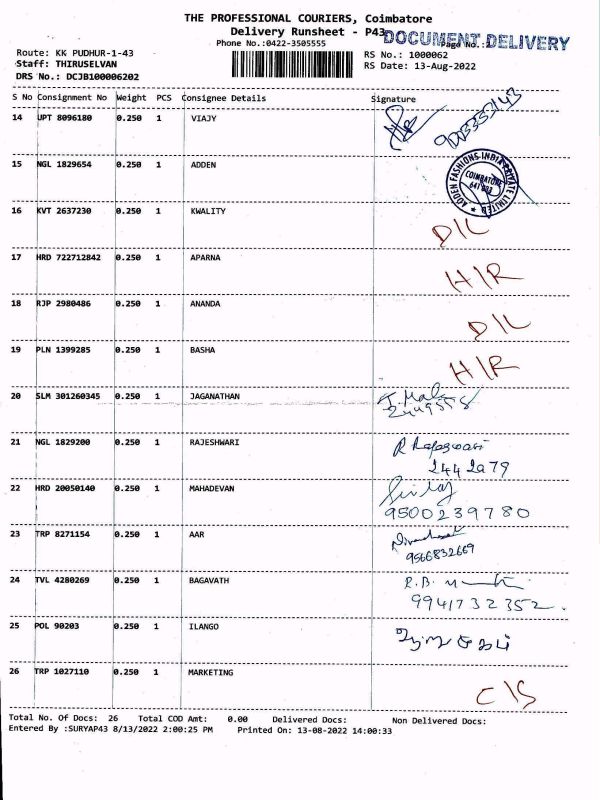 THE PROFESSIONAL COURIERS, Coimbatore
Delivery Runsheet - P43
DOCUMENT DELIVERY
Phone No.:0422-3505555 Page No.:2
Route: KK PUDHUR-1-43 RS No.: 1000062
Staff: THIRUSELVAN RS Date: 13-Aug-2022
DRS No.: DCJB100006202
S No Consignment No Weight PCS Consignee Details Signature
14 UPT 8096180 0.250 1 VIAJY
15 NGL 1829654 0.250 1 ADDEN
ADDEN FASHIONS INDIA PRIVATE LIMITED
COIMBATORE
16 KVT 2637230 0.250 1 KWALITY D/L
17 HRD 722712842 0.250 1 APARNA H/R
18 RJP 2980486 0.250 1 ANANDA D/L
19 PLN 1399285 0.250 1 BASHA H/R
20 SLM 301260345 0.250 1 JAGANATHAN
21 NGL 1829200 0.250 1 RAJESHWARI R Rajeswari
2442079
22 HRD 20050140 0.250 1 MAHADEVAN
9500239780
23 TRP 8271154 0.250 1 AAR
9566832669
24 TVL 4280269 0.250 1 BAGAVATH R.B.
9941732352
25 POL 90203 0.250 1 ILANGO
26 TRP 1027110 0.250 1 MARKETING C/S
Total No. Of Docs: 26 Total COD Amt: 0.00 Delivered Docs: Non Delivered Docs:
Entered By :SURYAP43 8/13/2022 2:00:25 PM Printed On: 13-08-2022 14:00:33